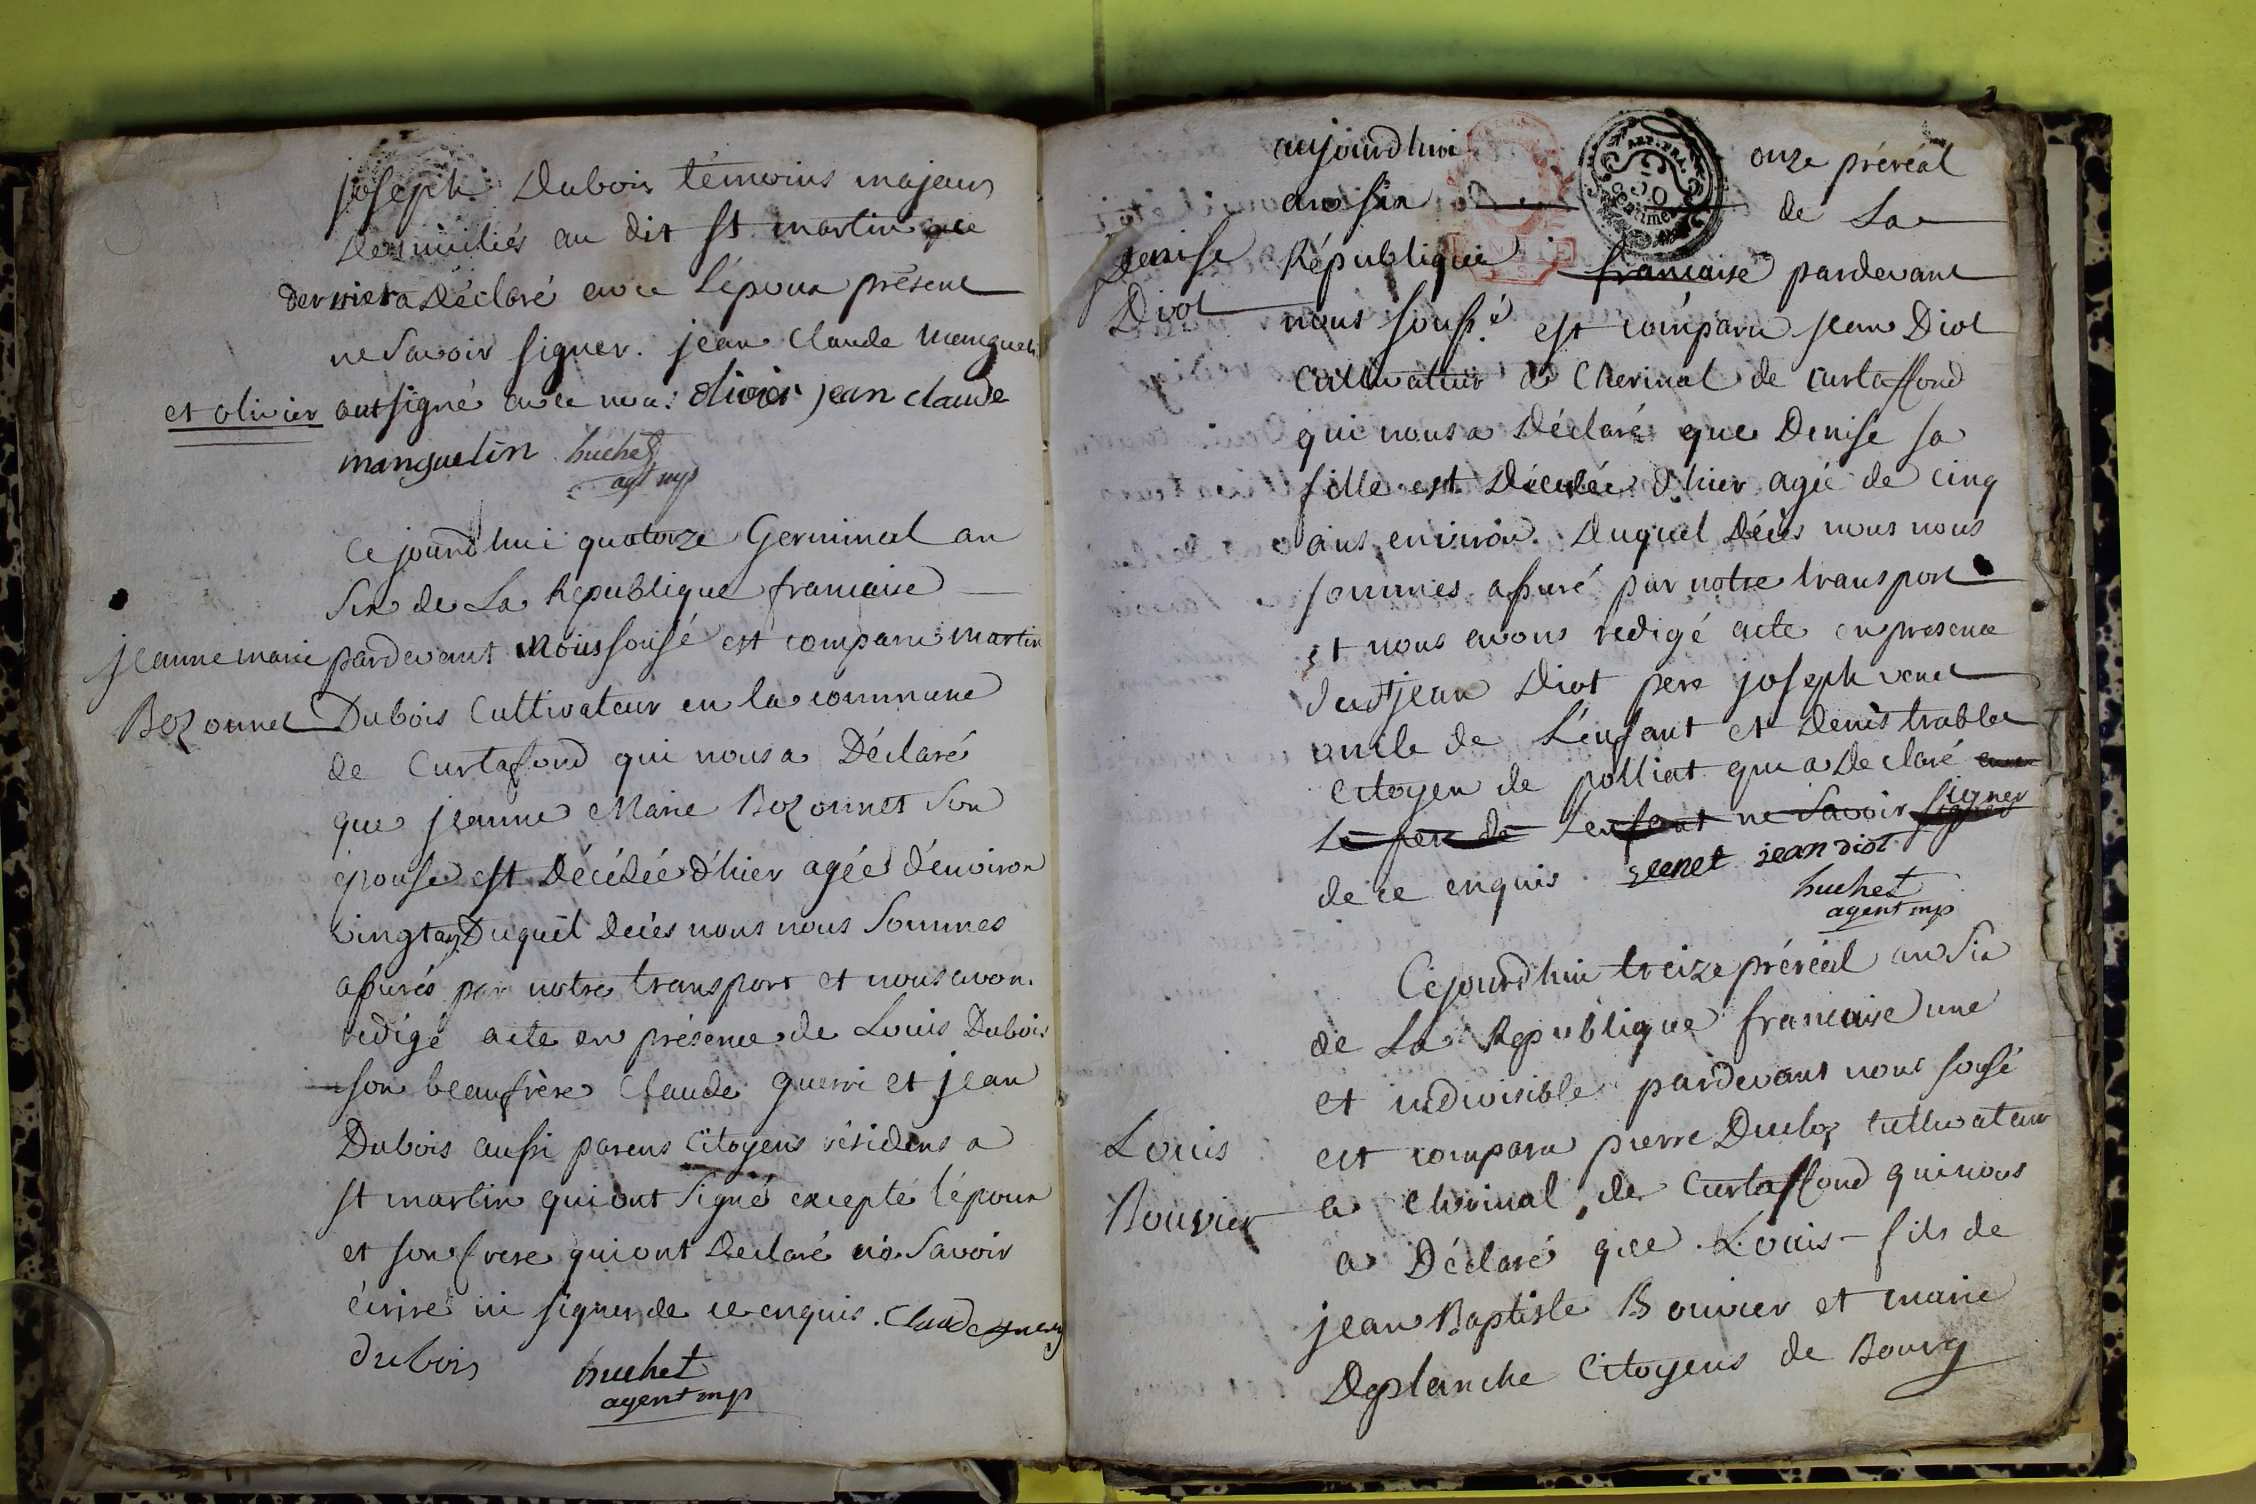 joseph Dubois témoins majeurs
Domiciliés au dit st martin que
dernier a Déclaré avec l'époux présent
ne Savoir signer. jean Claude manguelin
et olivier ont signé avec nous. olivier jean claude
manguelin huchet
agt mp
Ce jourd'hui quatorze Germinal an
Six de La République francaise
jeanne marie
Bozonnet
pardevant Nous sousé est comparu martin
Dubois Cultivateur en la commune
de Curtafond qui nous a Déclaré
que jeanne Marie Bozonnet Son
épouse est Décédée d'hier agée d'environ
vingt ans Duquel Décès nous nous Sommes
assurés par notre transport et nous avons
redigé acte en présence de Louis Dubois
son beaufrère Claude guerri et jean
Dubois aussi parens Citoyens résidens a
st martin qui ont Signé excepté l'époux
et son frere qui ont Declaré ne Savoir
écrire ni signer de ce enquis. Claude
dubois huchet
agent mp
aujourdhui onze préréal
an six de La
REP. FRA.
50
centimes
Denise
Diot
République francaise pardevant
nous soussé. est comparu jean Diot
Cultivatteur de Cherinal de curtaffond
qui nous a Déclaré que Denise sa
fille est Décédée d'hier agée de cinq
ans environ. Duquel Décès nous nous
sommes assuré par notre transport
et nous avons redigé acte en presence
dudt jean Diot pere joseph venet
oncle de L'enfant et Denis trablet
Citoyen de polliat qui a Declaré
Le pere de Lenfant ne Savoir signer
de ce enquis. venet jean diot
huchet
agent mp
Cejourd'hui treize préréal an Six
de La République francaise une
et indivisible pardevant nous sousé
Louis
Bouvier
est comparu pierre Cultivateur
a Cherinal de Curtaffond qui nous
a Déclaré que Louis fils de
jean Baptiste Bouvier et marie
Deplanche Citoyens de Bourg